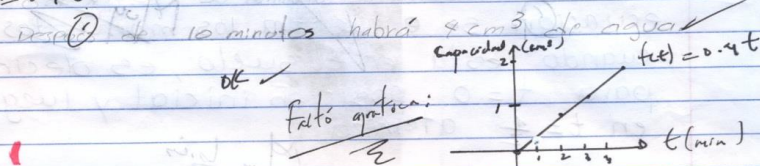 Después de 10 minutos habrá 4 cm³ de agua
①
OK ✓
Faltó gráfica:
Capacidad (cm³)
2
f(t) = 0.4t
1
1 2 3
t (min)